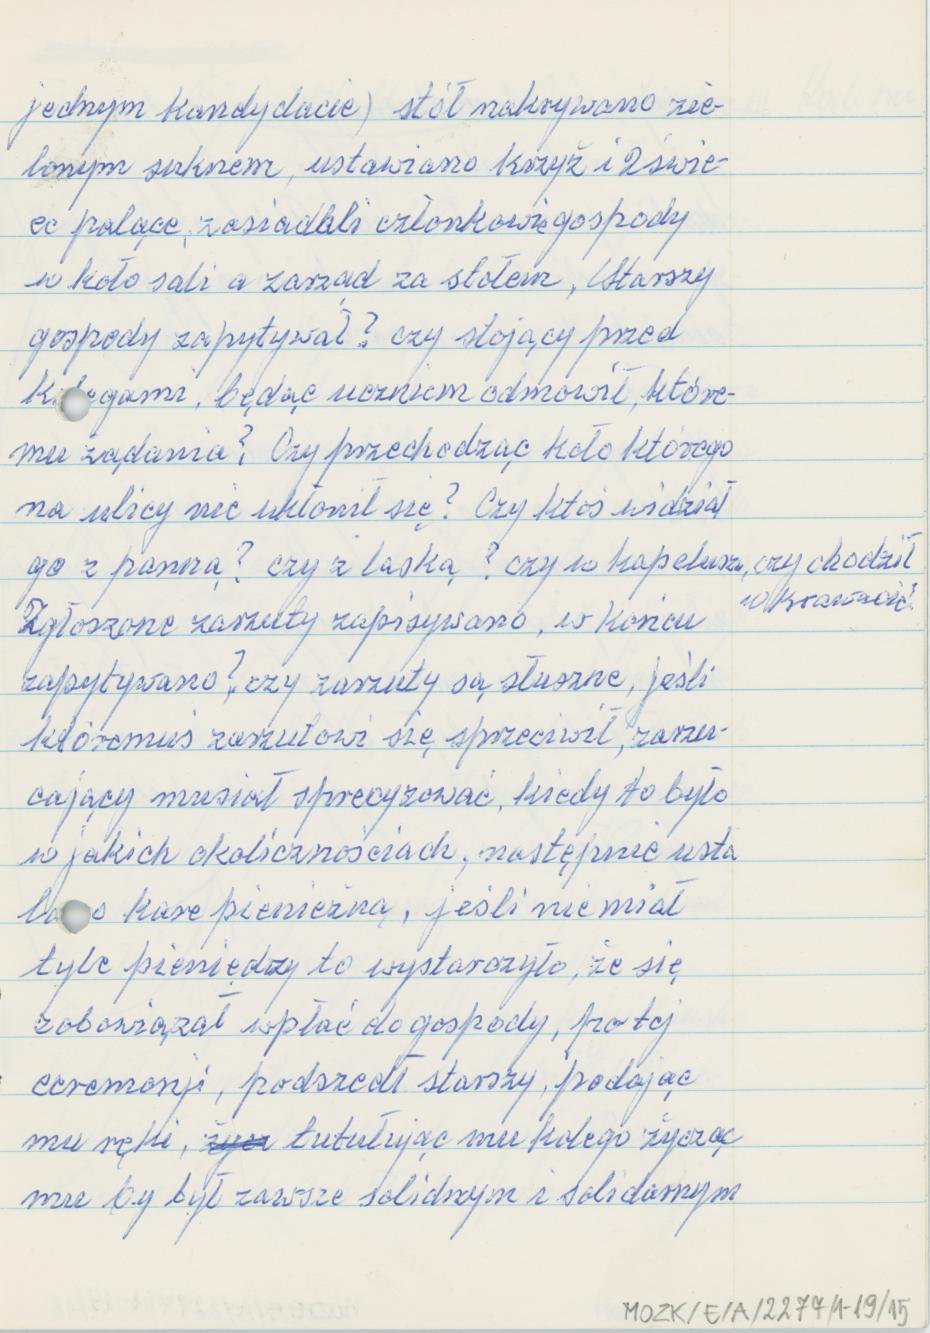 jednym kandydacie) stół nakrywano zie-
lonym suknem, ustawiano krzyż i 2 świe-
ce palące, zasiadali członkowie gospody
w koło sali a zarząd za stołem, Starszy
gospody zapytywał? czy stojący przed
kolegami, będąc uczniem odmówił, które-
mu żądania? Czy przechodząc koło którego
na ulicy nie ukłonił się? Czy ktoś widział
go z panną? czy z laską? czy w kapeluszu, czy chodził
w krawacie?
Zgłoszone zarzuty zapisywano, w końcu
zapytywano?, czy zarzuty są słuszne, jeśli
któremuś zarzutowi się sprzeciwił, zarzu-
cający musiał sprecyzować, kiedy to było
w jakich okolicznościach, następnie usta
lano karę pieniężną, jeśli nie miał
tyle pieniędzy to wystarczyło, że się
zobowiązał wpłać do gospody, po tej
ceremonji, podszedł starszy, podając
mu ręki, tutułując mu kolego życząc
mu by był zawsze solidnym i solidarnym
MOZK/E/A/2277/1-19/15